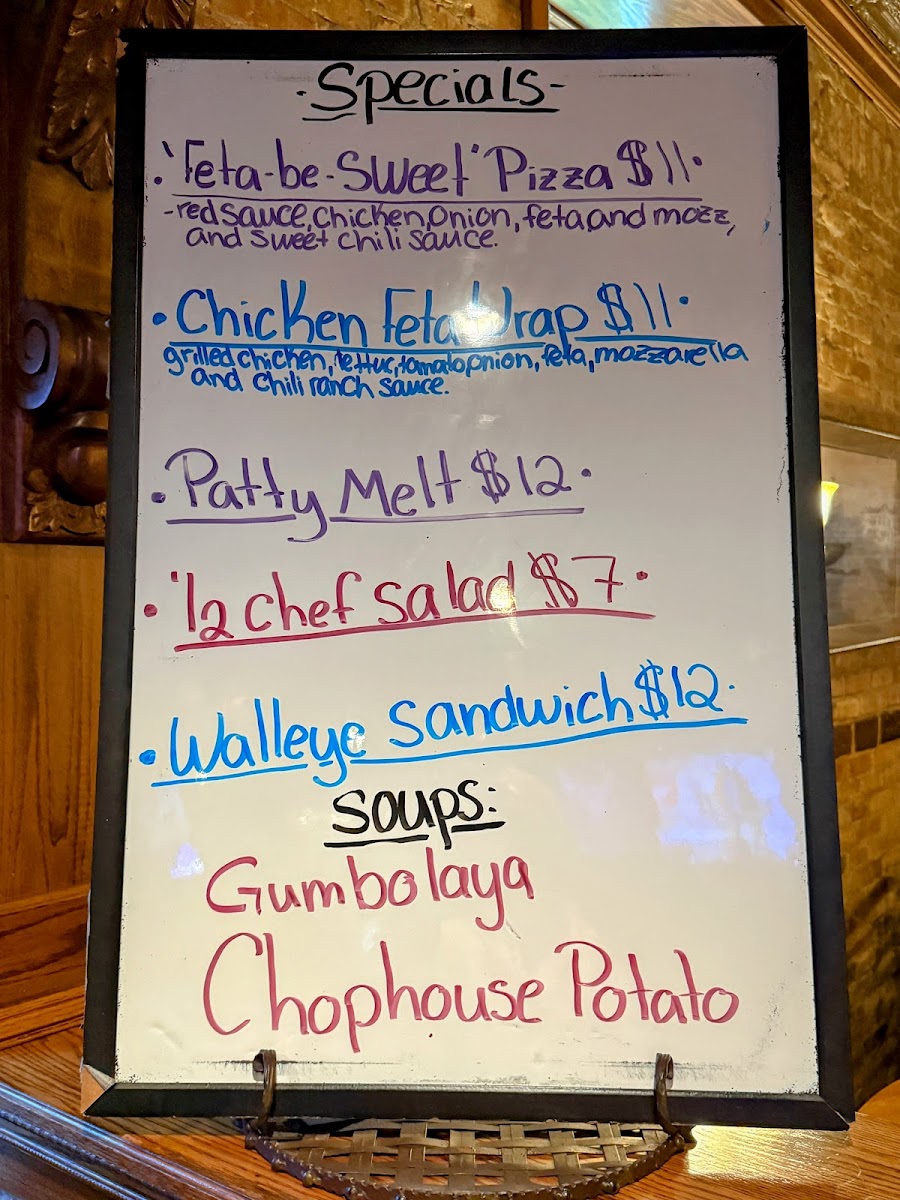 -Specials-
• "Feta-be-Sweet" Pizza $11•
-red sauce, chicken, onion, feta and mozz,
and sweet chili sauce.
• Chicken Feta Wrap $11•
grilled chicken, lettuc, tomato onion, feta, mozzarella
and chili ranch sauce.
• Patty Melt $12•
• 1/2 chef salad $7•
• Walleye Sandwich $12•
Soups:
Gumbolaya
Chophouse Potato